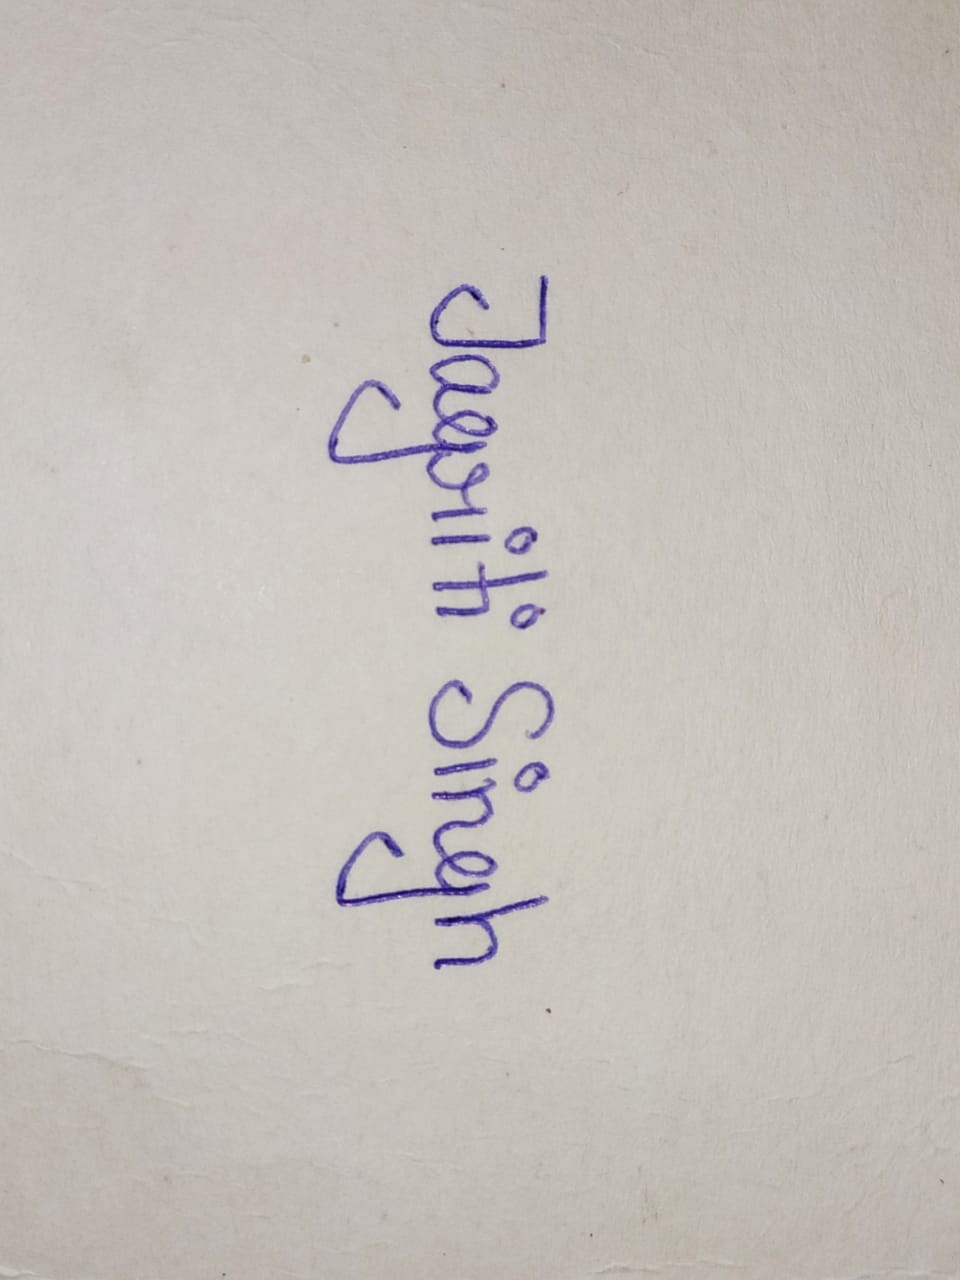 Jagriti Singh